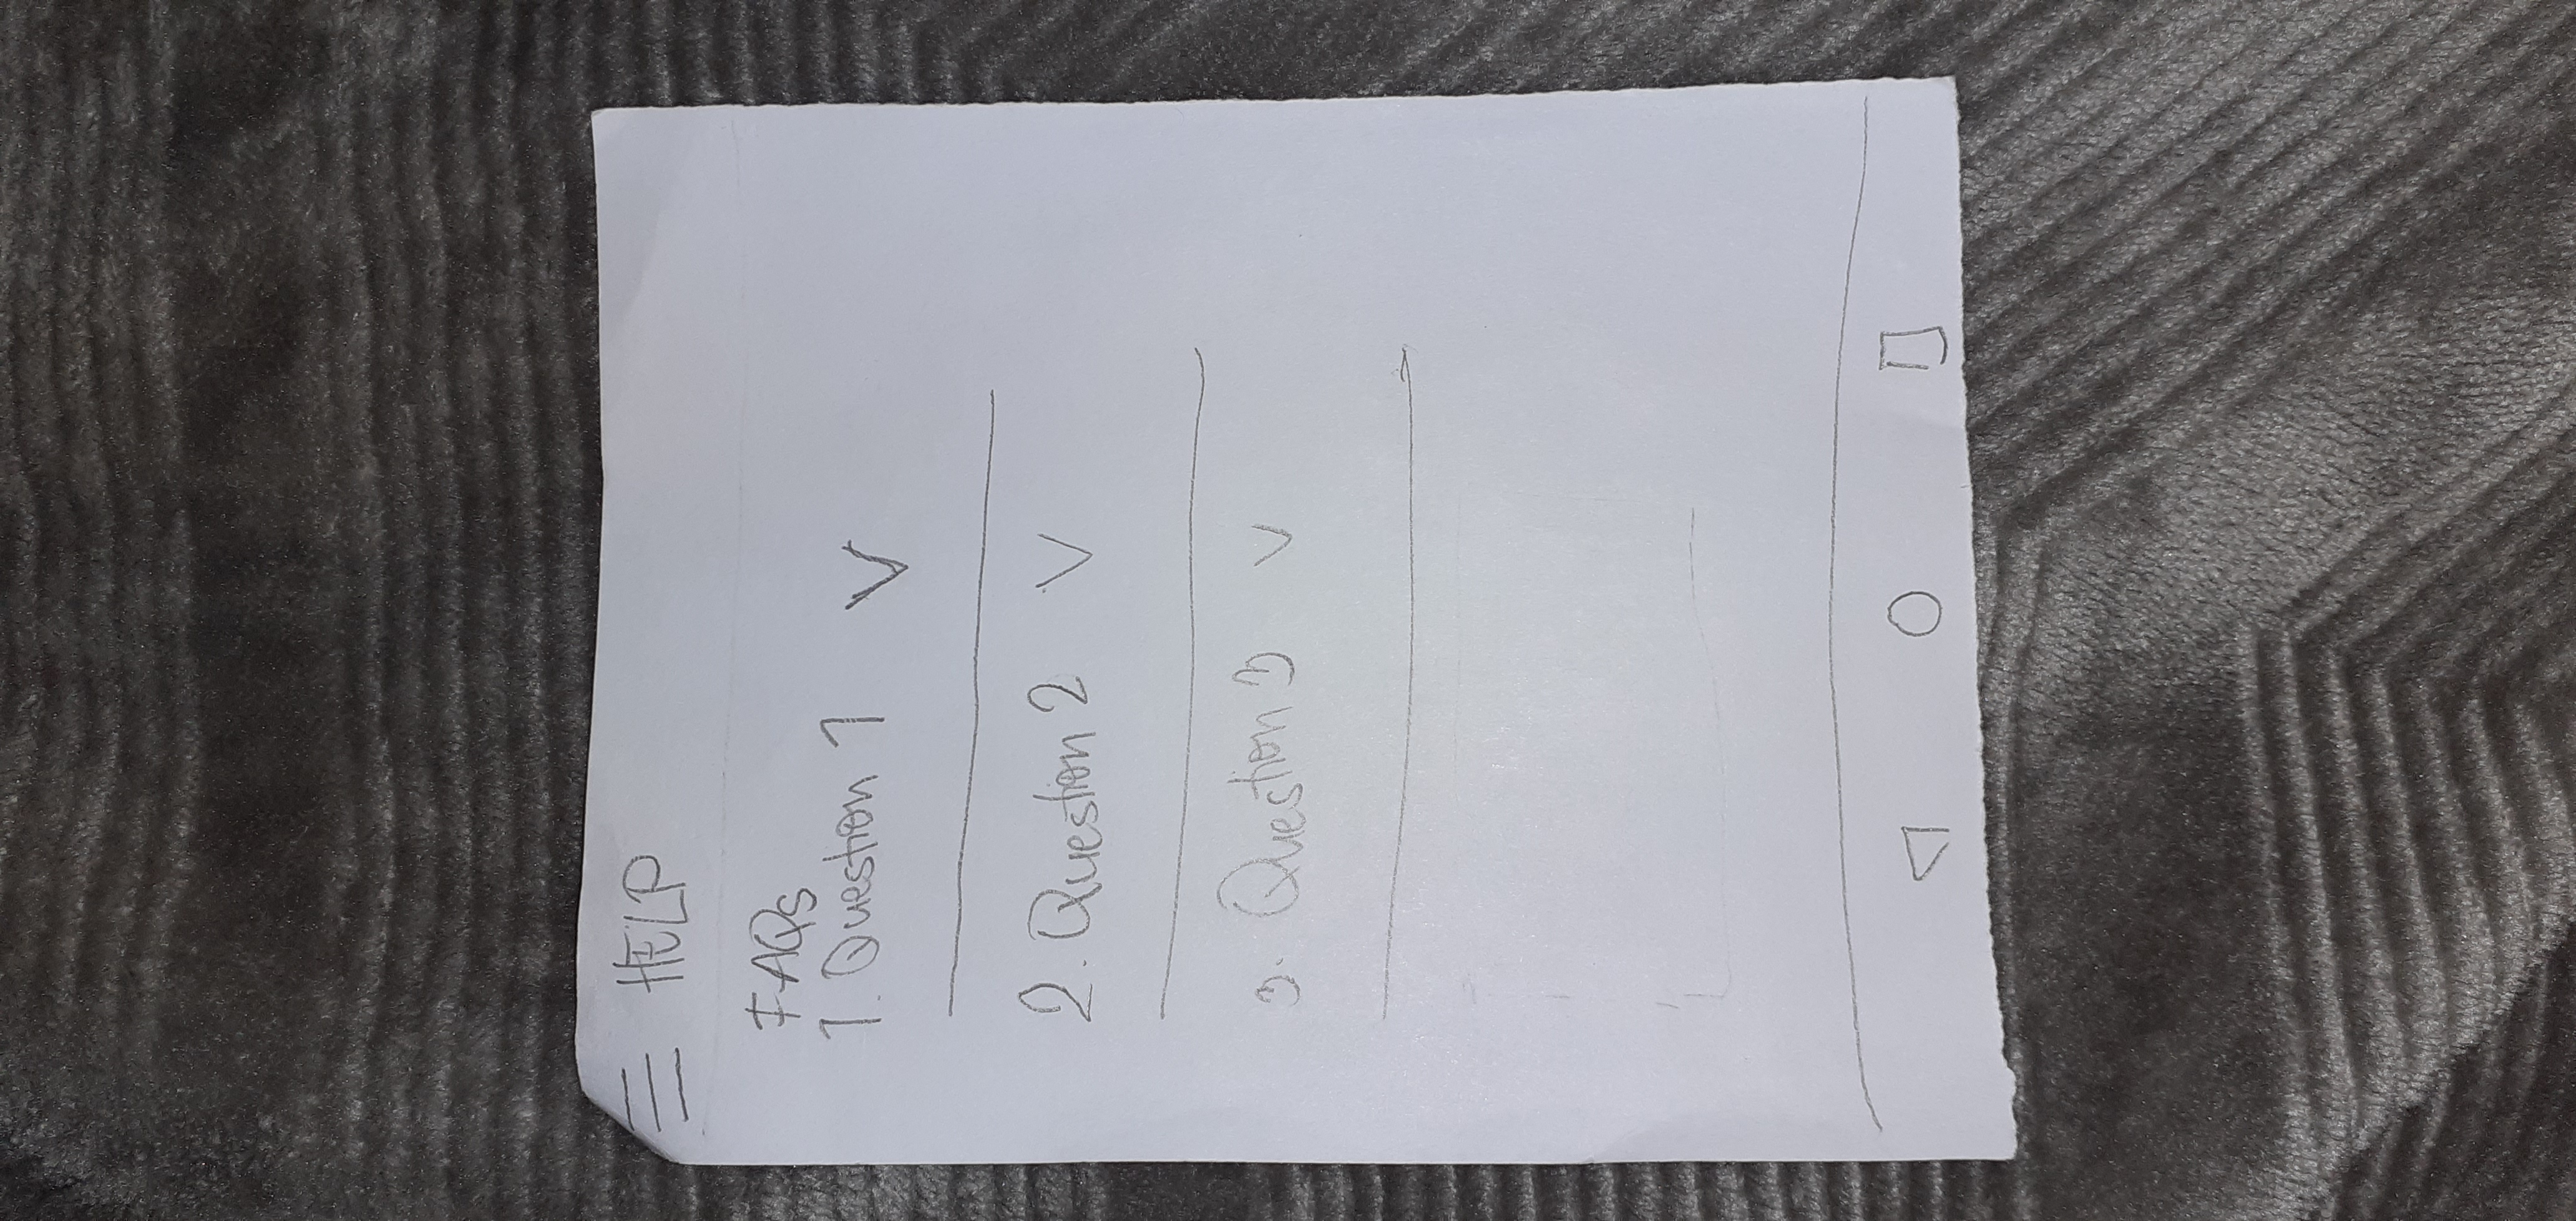 HELP
FAQs
1. Question 1
2. Question 2
3. Question 3